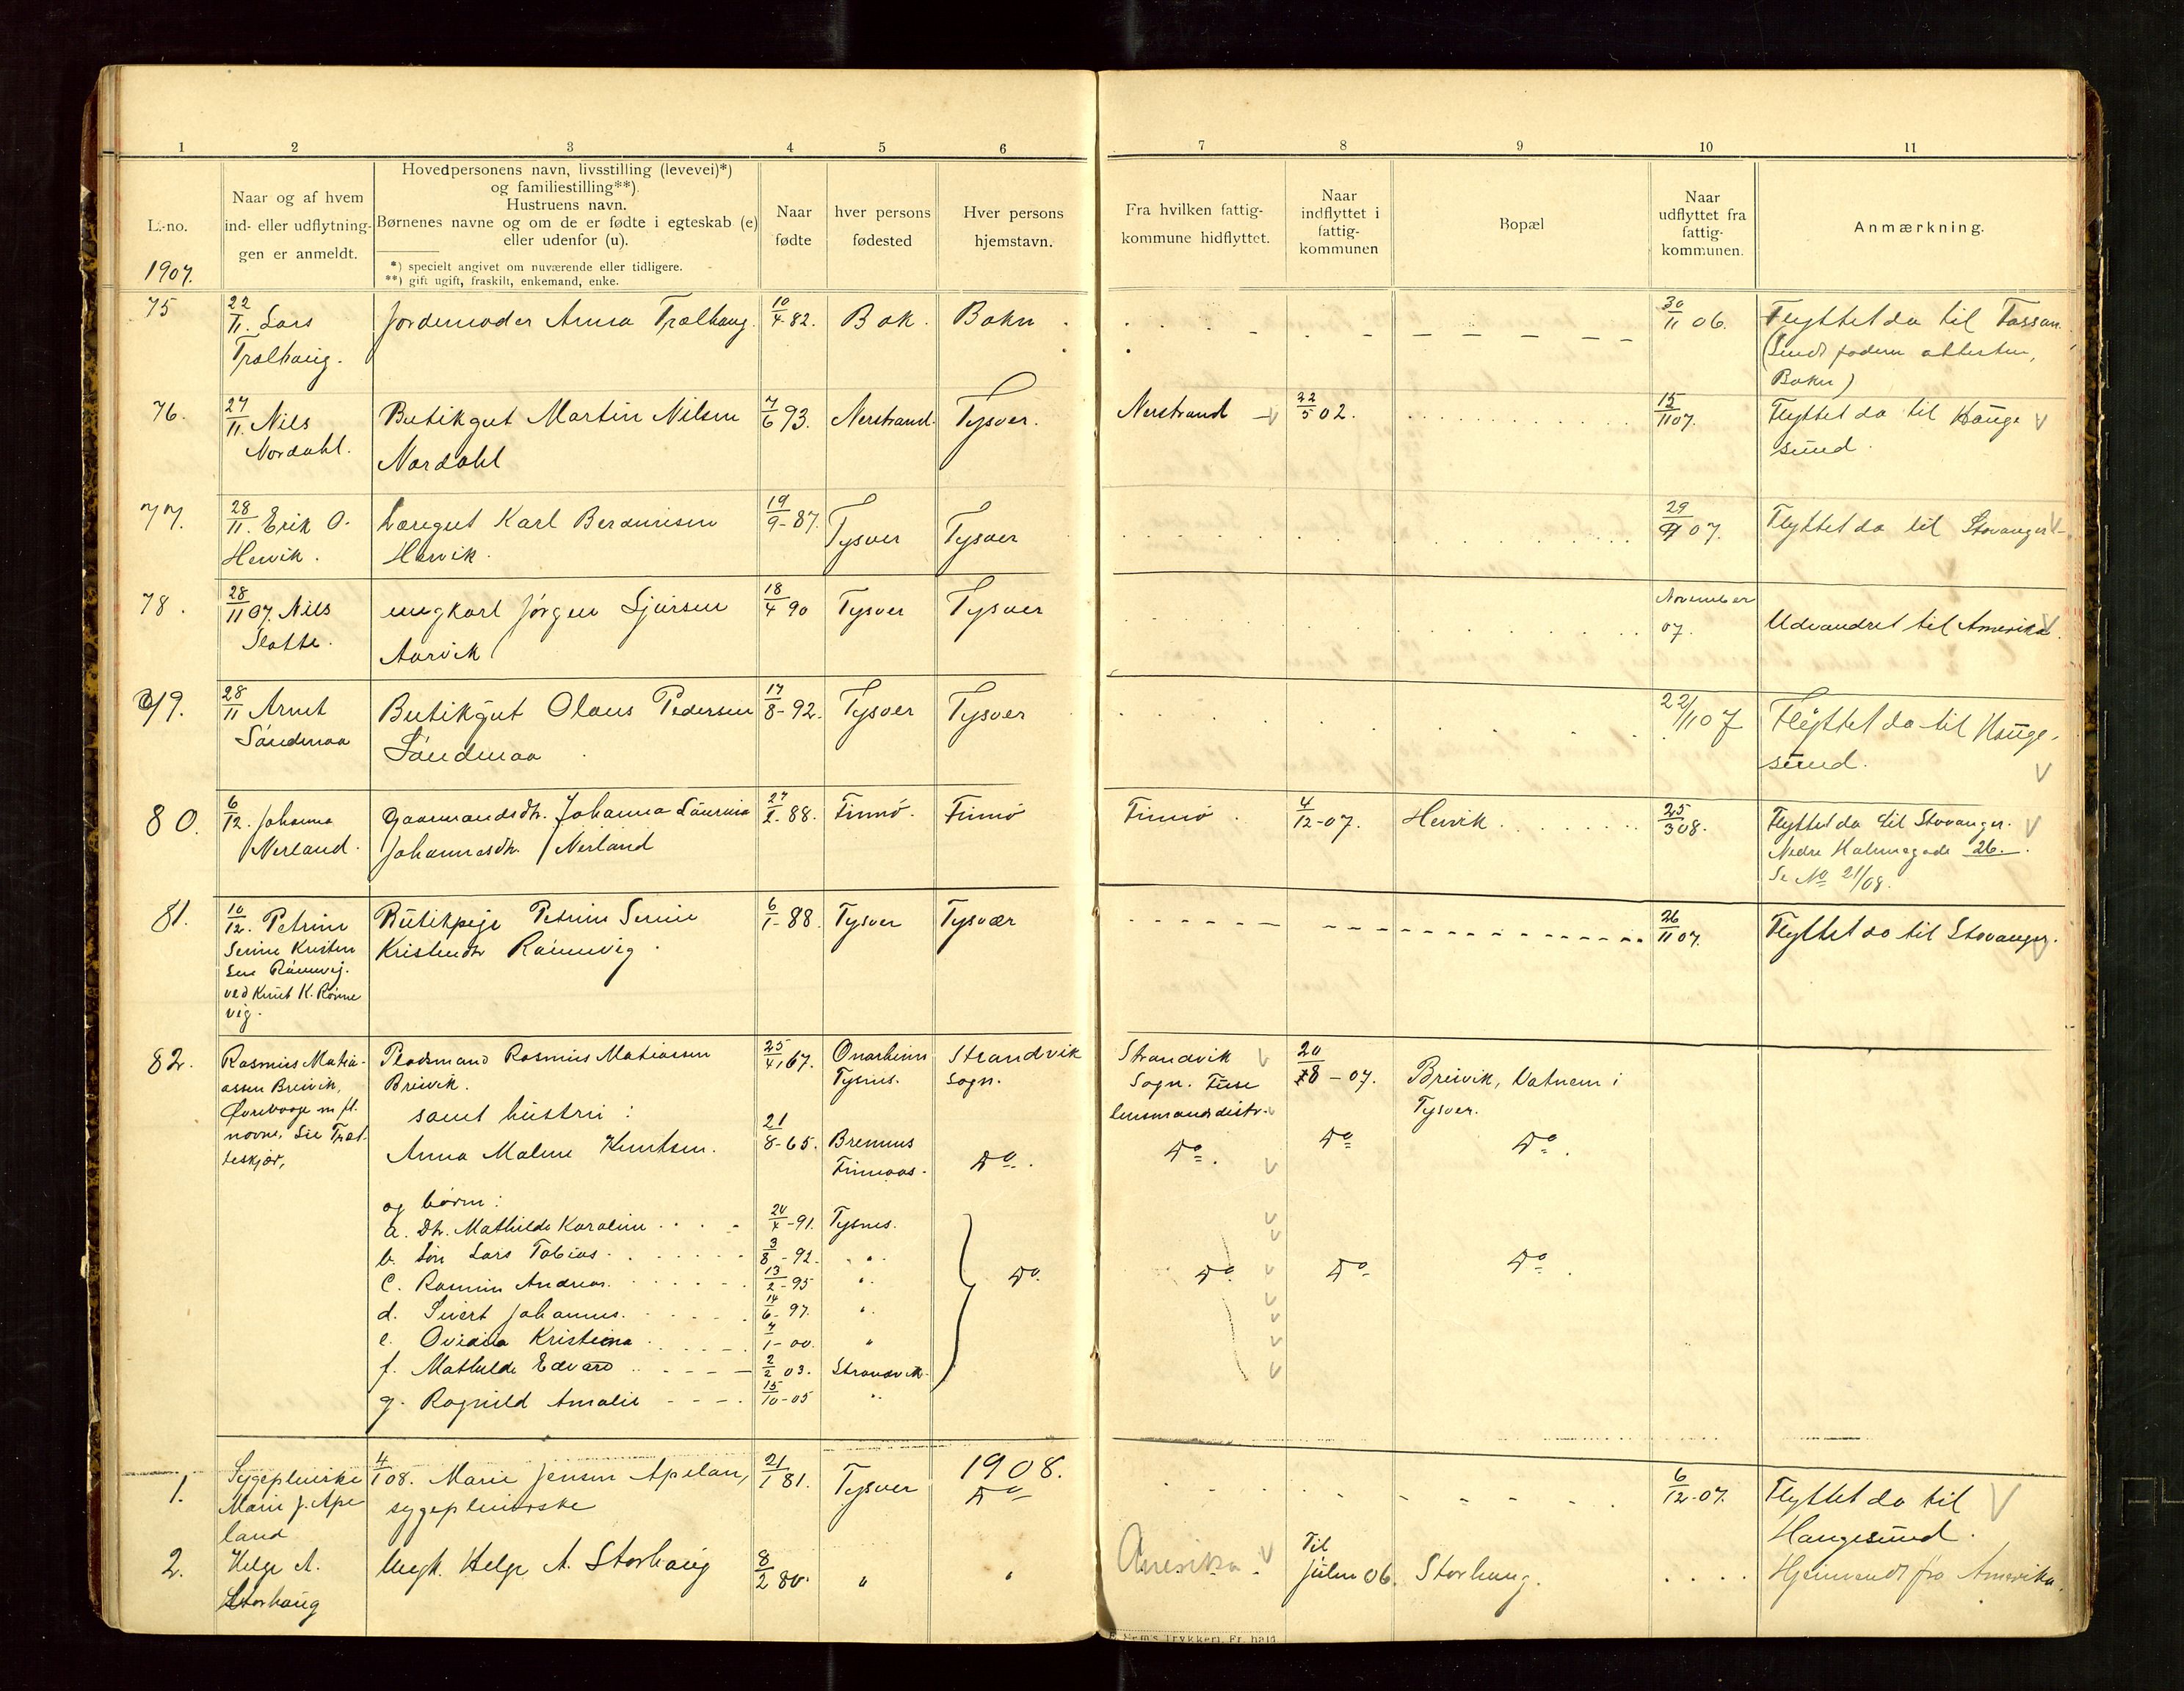 1 2 3 4 5 6 7 8 9 10 11
L.-no.
1907.
Naar og af hvem
ind- eller udflytnin-
gen er anmeldt.
Hovedpersonens navn, livsstilling (levevei)*)
og familiestilling**).
Hustruens navn.
Børnenes navne og om de er fødte i egteskab (e)
eller udenfor (u).
*) specielt angivet om nuværende eller tidligere.
**) gift ugift, fraskilt, enkemand, enke.
Naar
fødte
hver persons
fødested
Hver persons
hjemstavn.
Fra hvilken fattig-
kommune hidflyttet.
Naar
indflyttet i
fattig-
kommunen
Bopæl
Naar
udflyttet fra
fattig-
kommunen.
Anmærkning.
75 22/11. Lars Jordemoder Anna Trælhaug 10/4-82. Bok. Bokn 30/11 06. Flyttet da til
Trælhaug. (Sendt faderen attesten,
Bokn)
76. 27/11. Nils Butikgut Martin Nilsen 7/6 93. Nerstrand. Tysver. Nerstrand 22/5 02. 15/11 07. Flyttet da til Hauge
Nordahl. Nordahl sund.
77. 28/11. Erik O. Læregut Karl 19/9-87. Tysver Tysver 29/9 07. Flyttet da til Stavanger
Hervik. Hervik.
78. 28/11 07. Nils ungkarl Jørgen Sjursen 18/4 90 Tysver Tysver November
07. Udvandret til Amerika.
Slotte. Aarvik
79. 28/11 Arnet Butikgut Olaus Pedersen 17/8-92. Tysver Tysver 22/11 07 Flyttet da til Hauge-
Sandmoa Sandmoa sund.
80. 6/12. Johanna Gaarmandsdtr. Johanna Laurina 27/2-88. Finnø. Finnø Finnø. 4/12-07. Hervik 25/3 08. Flyttet da til Stavanger.
Nerland. Johannesdtr. Nerland Nedre Holmegade 26.
Se No 21/08.
81. 10/12. Petrine Butikpige Petrine Serine 6/1-88. Tysver Tysvær 26/11 07. Flyttet da til Stavanger.
Serine Kristen Kristendtr Rønnevig.
sen Rønnevig.
ved Knut K. Rønne
vig.
82. Rasmus Matia- Pladsmand Rasmus Matiassen 25/4 67. Onarheim Strandvik Strandvik 20/8-07. Breivik, Vatnem i
assen Breivik, Breivik. Tysnes. Sogn. Sogn. Fuse Tysver.
m fl. samt hustru: lensmandsdistr.
navne, Sie Træt- Anna Malene Knutsen. 21/8-65. Bremnes Do. Do. Do Do.
teskjær, Finnaas.
og børn:
a. Dtr. Mathilde Karoline 20/4-91. Tysnes.
b. Søn Lars Tobias. 3/8-92. "
c. Rasmus Andreas. 13/2-95 " Do. Do. Do Do.
d. Sivert Johannes. 14/6-97. "
e. Ovidia Kristiina 7/1-00. "
f. Mathilde Edvard 2/2 03. Strandvik
g. Ragnild Amalie 15/10-05 "
1908.
1. Sygepleierske 4/1 08. Marie Jensen Apelan, 21/1 81. Tysver Do 6/12-07. Flyttet da til
Marie J. Ape sygepleierske Haugesund.
land
2. Helge A. Ungk. Helge A. Storhaug 8/2 80. " " Amerika. Til
Julen 06. Storhaug. Hjemvendt fra Amerika.
Storhaug
Trykkeri, Fr. hald